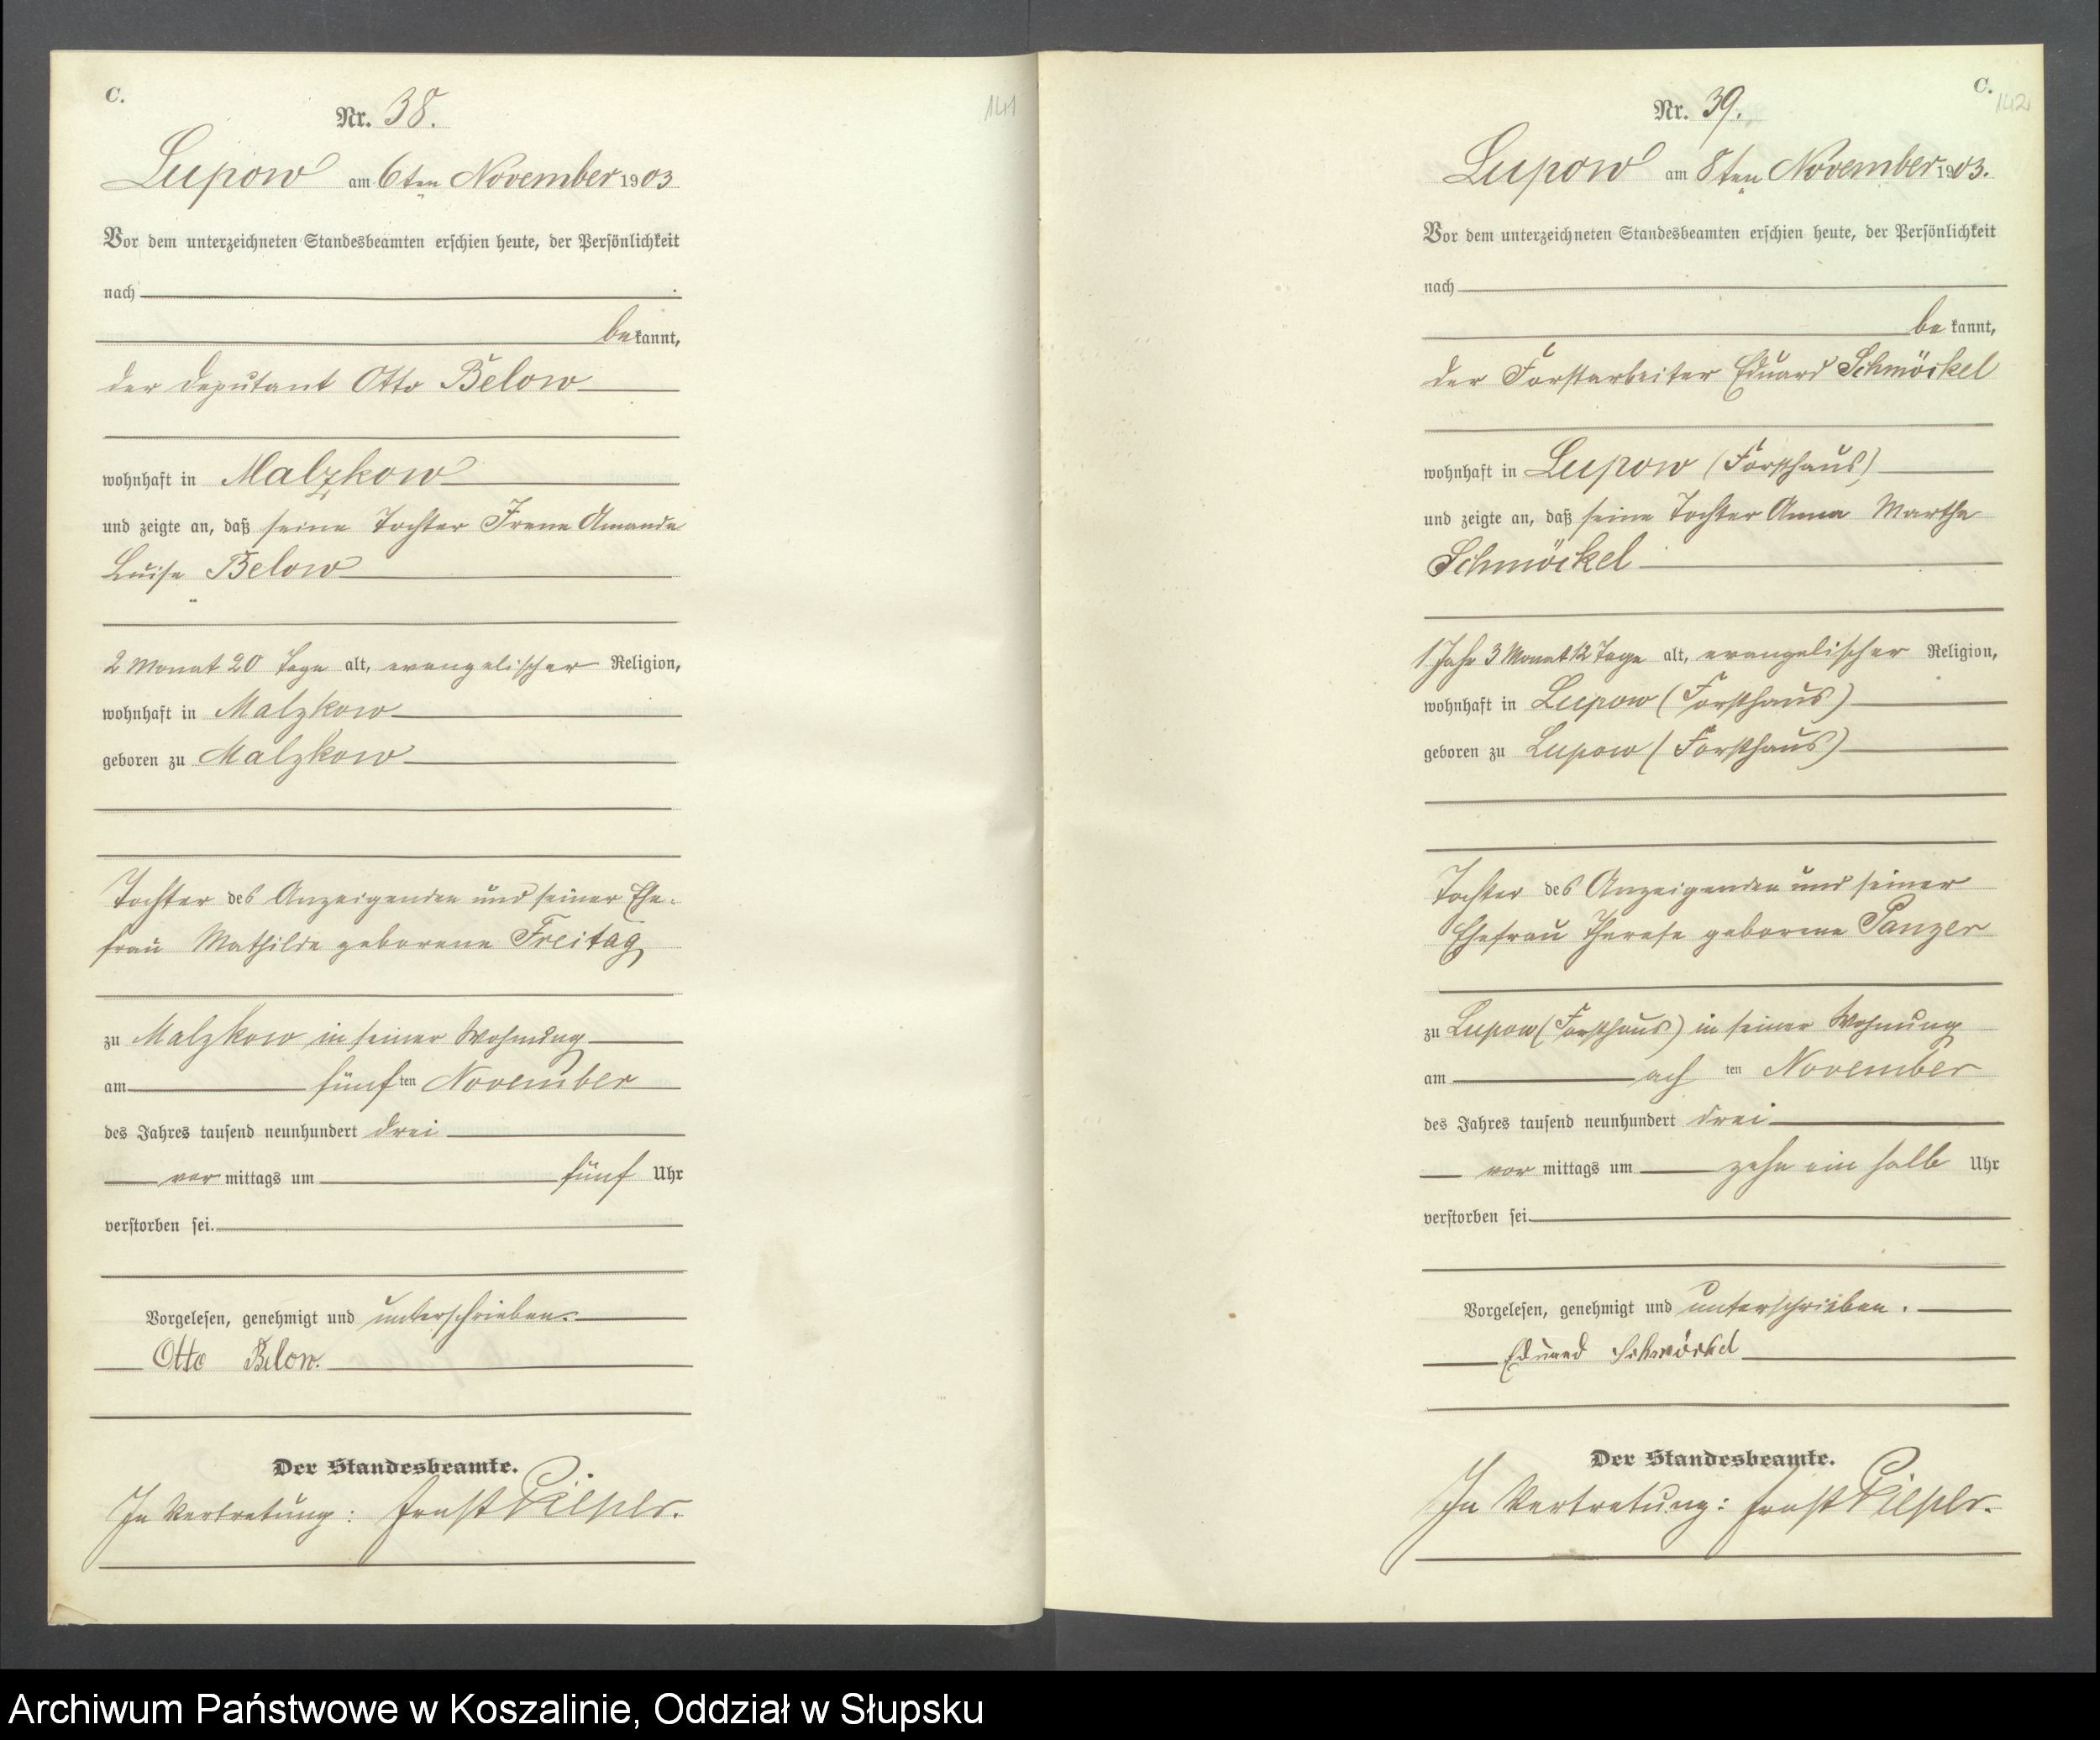 C.
141
Nr. 38.
Lupow am 6ten November 1903
Vor dem unterzeichneten Standesbeamten erschien heute, der Persönlichkeit
nach
bekannt,
der Deputant Otto Below
wohnhaft in Malzkow
und zeigte an, daß seine Tochter Irene Amanda
Luise Below
2 Monat 20 Tage alt, evangelischer Religion,
wohnhaft in Malzkow
geboren zu Malzkow
Tochter des Anzeigenden und seiner Ehe-
frau Mathilde geborene Freitag
zu Malzkow in seiner Wohnung
am fünften November
des Jahres tausend neunhundert drei
vormittags um fünf Uhr
verstorben sei.
Vorgelesen, genehmigt und unterschrieben.
Otto Below.
Der Standesbeamte.
In Vertretung: Ernst
C.
142
Nr. 39.
Lupow am 8ten November 1903.
Vor dem unterzeichneten Standesbeamten erschien heute, der Persönlichkeit
nach
bekannt,
der Forstarbeiter Eduard Schmöckel
wohnhaft in Lupow (Forsthaus)
und zeigte an, daß seine Tochter Anna Martha
Schmöckel
1 Jahr 3 Monat 12 Tage alt, evangelischer Religion,
wohnhaft in Lupow (Forsthaus)
geboren zu Lupow (Forsthaus)
Tochter des Anzeigenden und seiner
Ehefrau Therese geborene Panzer
zu Lupow (Forsthaus) in seiner Wohnung
am achten November
des Jahres tausend neunhundert drei
vormittags um zehn ein halb Uhr
verstorben sei.
Vorgelesen, genehmigt und unterschrieben.
Eduard Schmöckel
Der Standesbeamte.
In Vertretung: Ernst
Archiwum Państwowe w Koszalinie, Oddział w Słupsku